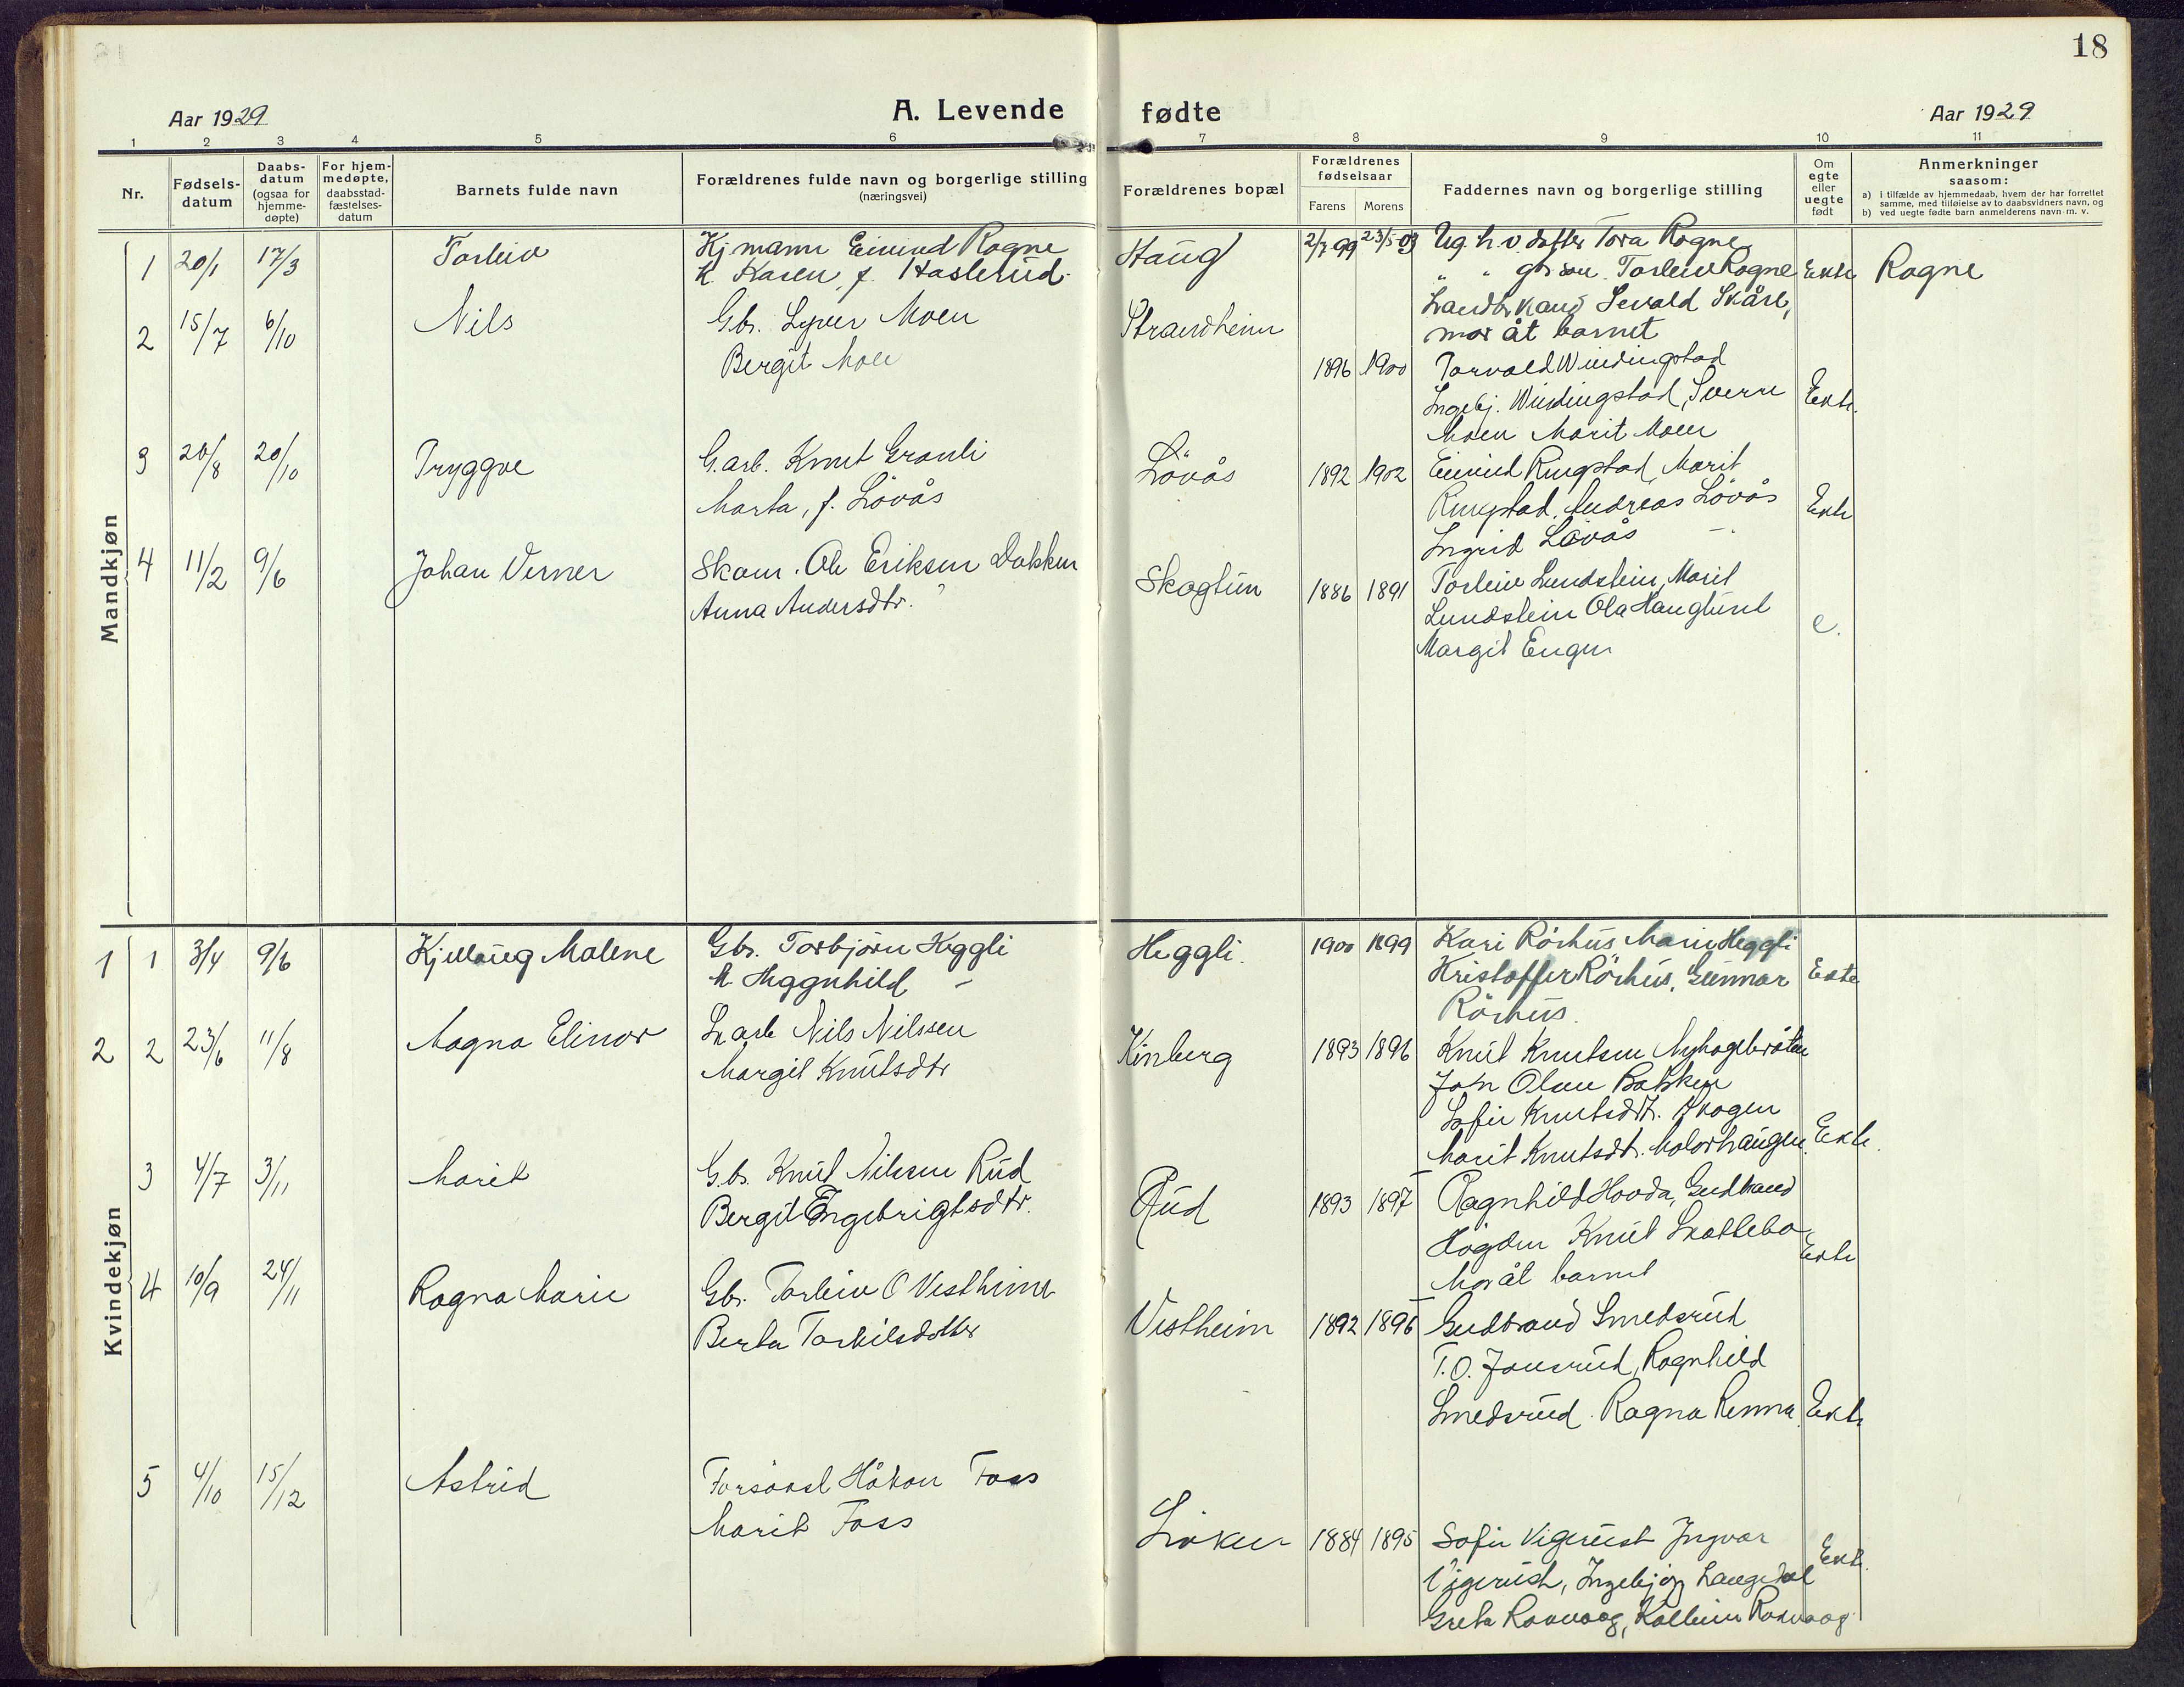 18
Aar 1929
A. Levende fødte
Aar 1929
1 2 3 4 5 6 7 8 9 10 11
Nr.
Fødsels-
datum
Daabs-
datum
(ogsaa for
hjemme-
døpte)
For hjem-
medøpte,
daabsstad-
fæstelses-
datum
Barnets fulde navn
Forældrenes fulde navn og borgerlige stilling
(næringsvei)
Forældrenes bopæl
Forældrenes
fødselsaar
Farens Morens
Faddernes navn og borgerlige stilling
Om
egte
eller
uegte
født
Anmerkninger
saasom:
a) i tilfælde av hjemmedaab, hvem der har forrettet
samme, med tilføielse av to daabsvidners navn, og
b) ved uegte fødte barn anmelderens navn m. v.
Mandkjøn
1 20/1 17/3 Torleiv
Kj mann Eivind Rogne
k. Karen, f. Haslerud
Haug 2/7 99 23/5 03
Ug. h. v. dotter Tora Rogne
" " gbr søn Torleiv Rogne
Landbr kand Sevald Skåre,
mor åt barnet
Ekte Rogne
2 15/7 6/10 Nils
Gbr. Syver Moen
Bergit Moen
Strandheim 1896 1900
Torvald Windingstad
Ingebj. Windingstad, Sverre
Moen Marit Moen
Ekte.
3 28/8 20/10 Tryggve
G.arb. Knut Granli
Marta, f. Lövås
Lövås 1892 1902
Eivind Ringstad, Marit
Ringstad, Andreas Lövås
Ingrid Lövås
Ekte
4 11/2 9/6 Johan Verner
Skom. Ole Eriksen Dokken
Anna Andersdtr.
Skogtun 1886 1891
Torleiv Lundstein, Marit
Lundstein Ola Hauglund
Margit Engen
e.
Kvindekjøn
1 1 3/4 9/6 Kjellaug Malene
Gbr. Torbjörn Heggli
k. Ragnhild –
Heggli. 1900 1899
Kari Rörhus Marie Heggli
Kristoffer Rörhus, Gunnar
Rörhus.
Ekte
2 2 23/6 11/8 Magna Elinor
L arb Nils Nilssen
Margit Knutsdtr
Kinberg 1893 1896
Knut Knutsen Nyhagebråten
John Olsen Bakken
Sofie Knutsdtr. Skogen
Marit Knutsdt. Molorhaugen
Ekte.
3 4/7 3/11 Marit
G.b. Knut Nilssen Rud
Bergit Engebrigtsdtr.
Rud 1893 1897
Ragnhild Hovda, Gudbrand
Högden Knut Skattebo
Mor åt barnet
Ekte
4 10/9 24/11 Ragna Marie
Gbr. Torleiv O Vestheim
Berta Torkilsdotter
Vestheim 1892 1896
Gudbrand Smedsrud
T. O. Jonsrud, Ragnhild
Smedsrud. Ragna Renna
Ekte
5 4/10 15/12 Astrid
Håkon Foss
Marit Foss
Löken 1884 1895
Sofie Vigerust Ingvar
Vigerust, Ingebjörg Langedal
Greta Ravnaag,
Ekte.